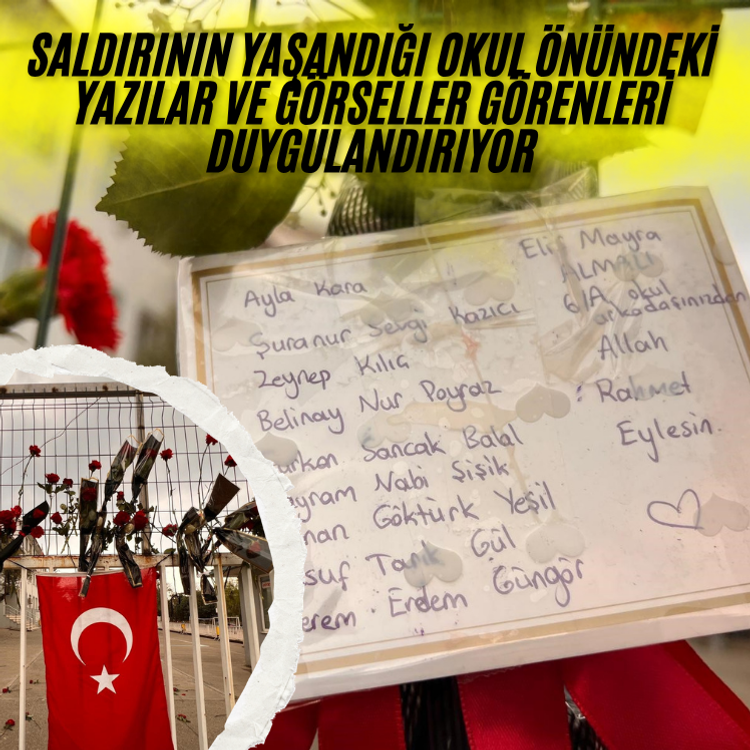 SALDIRININ YAŞANDIĞI OKUL ÖNÜNDEKİ
YAZILAR VE GÖRSELLER GÖRENLERİ
DUYGULANDIRIYOR
Ayla Kara
Şuranur Sevgi Kazıcı
Zeynep Kılıç
Belinay Nur Poyraz
Sancak Balal
Nabi Şişik
Göktürk Yeşil
Tarık Gül
Erdem Güngör
Elif Mayra
ALMALI
6/A okul
arkadaşınızdan
Allah
Rahmet
Eylesin.